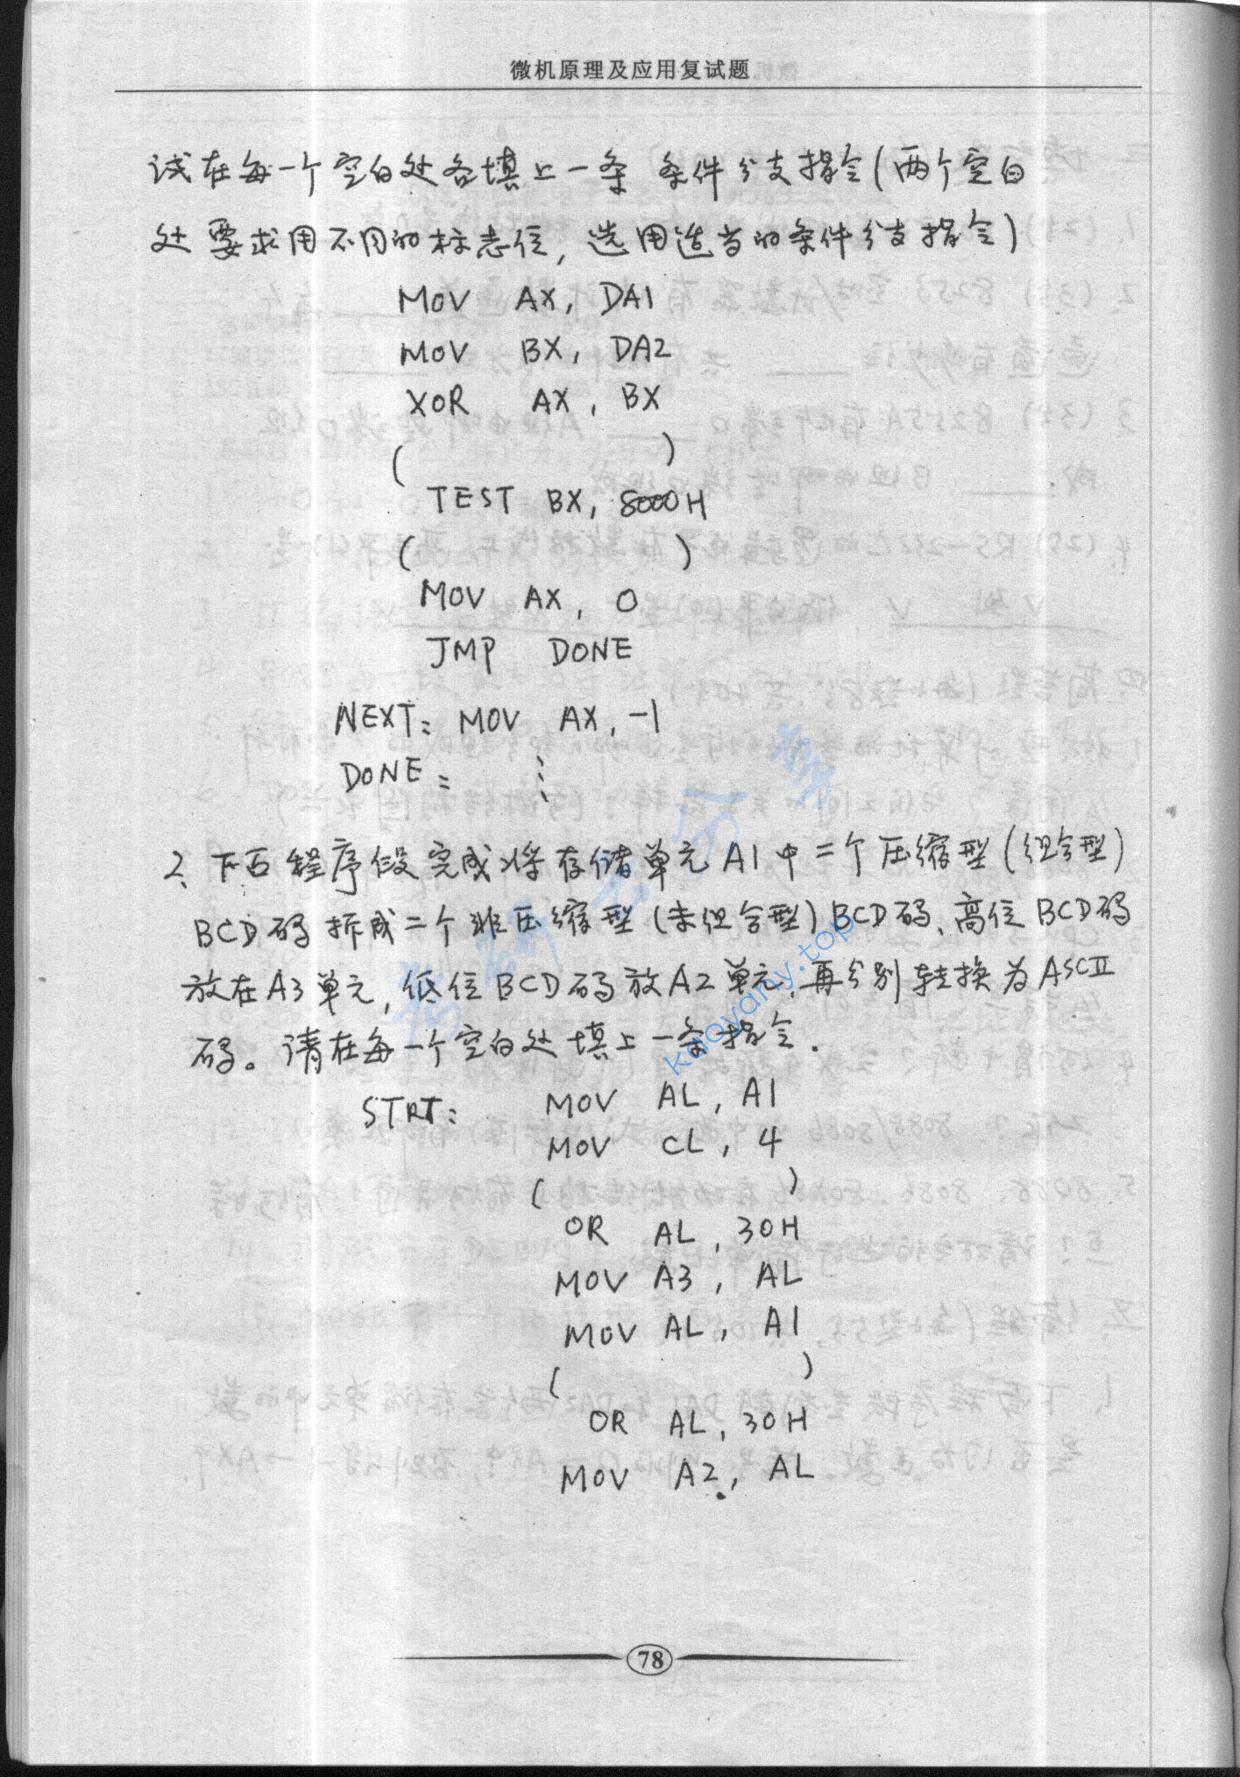 微机原理及应用复试题
试在每一个空白处各填上一条 条件分支指令(两个空白
处要求用不同的标志位,选用适当的条件分支指令)
MOV AX, DA1
MOV BX, DA2
XOR AX, BX
( )
TEST BX, 8000H
( )
MOV AX, 0
JMP DONE
NEXT: MOV AX, -1
DONE: ⋮
2、下面程序段完成将存储单元A1中二个压缩型(组合型)
BCD码拆成二个非压缩型(未组合型)BCD码、高位BCD码
放在A3单元,低位BCD码放A2单元,再分别转换为ASCII
码。请在每一个空白处填上一条指令.
STRT: MOV AL, A1
MOV CL, 4
( )
OR AL, 30H
MOV A3, AL
MOV AL, A1
( )
OR AL, 30H
MOV A2, AL
78
kaoyany.top